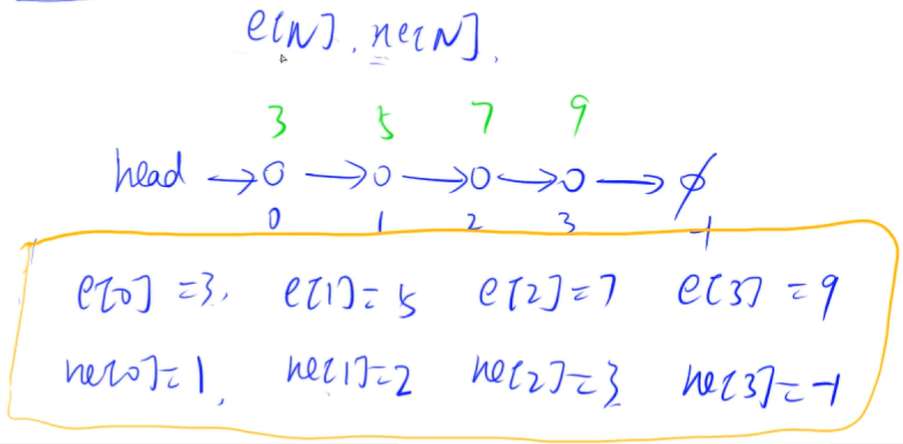 e[N], ne[N],
3 5 7 9
head → o → o → o → o → ∅
0 1 2 3 -1
e[0] = 3, e[1] = 5 e[2] = 7 e[3] = 9
ne[0] = 1, ne[1] = 2 ne[2] = 3 ne[3] = -1